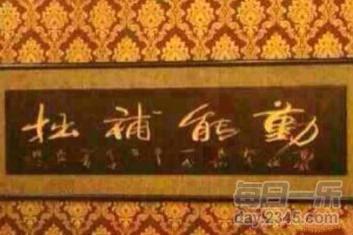 勤能補拙
每日一乐
day.2345.com